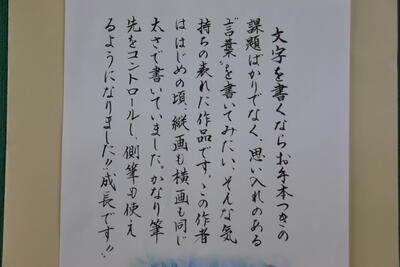 文字を書くならお手本つきの
課題ばかりでなく、思い入れのある
"言葉"を書いてみたい、そんな気
持ちの表れた作品です。この作者
ははじめの頃、縦画も横画も同じ
太さで書いていました。かなり筆
先をコントロールし、側筆も使え
るようになりました!!成長です!!